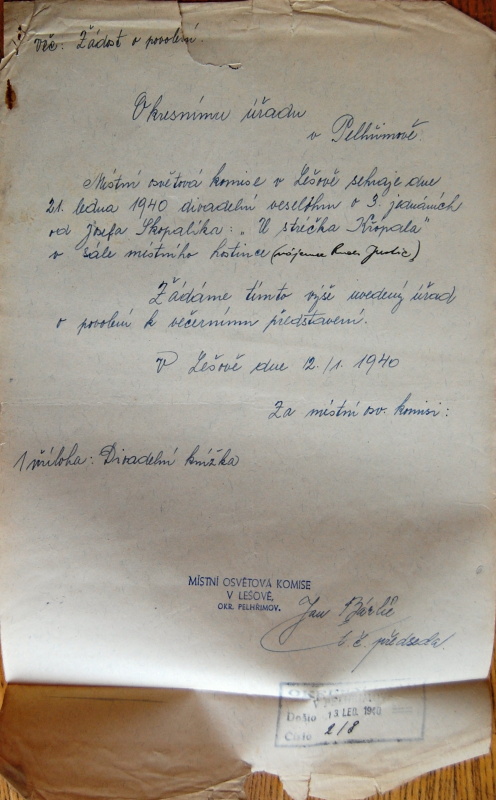 Věc: Žádost o povolení.
Okresnímu úřadu
v Pelhřimově.
Místní osvětová komise v Lešově sehraje dne
21. ledna 1940 divadelní veselohru o 3. jednáních
od Josefa Skopalíka: „U strýčka Kropala"
v sále místního hostince (nájemce
Žádáme tímto výše uvedený úřad
o povolení k večernímu představení.
V Lešově dne 12./1. 1940
Za místní osv. komisi:
1 příloha: Divadelní knížka
MÍSTNÍ OSVĚTOVÁ KOMISE
V LEŠOVĚ,
OKR. PELHŘIMOV.
Jan
t. č. předseda.
Došlo 13. LED. 1940
Číslo 218